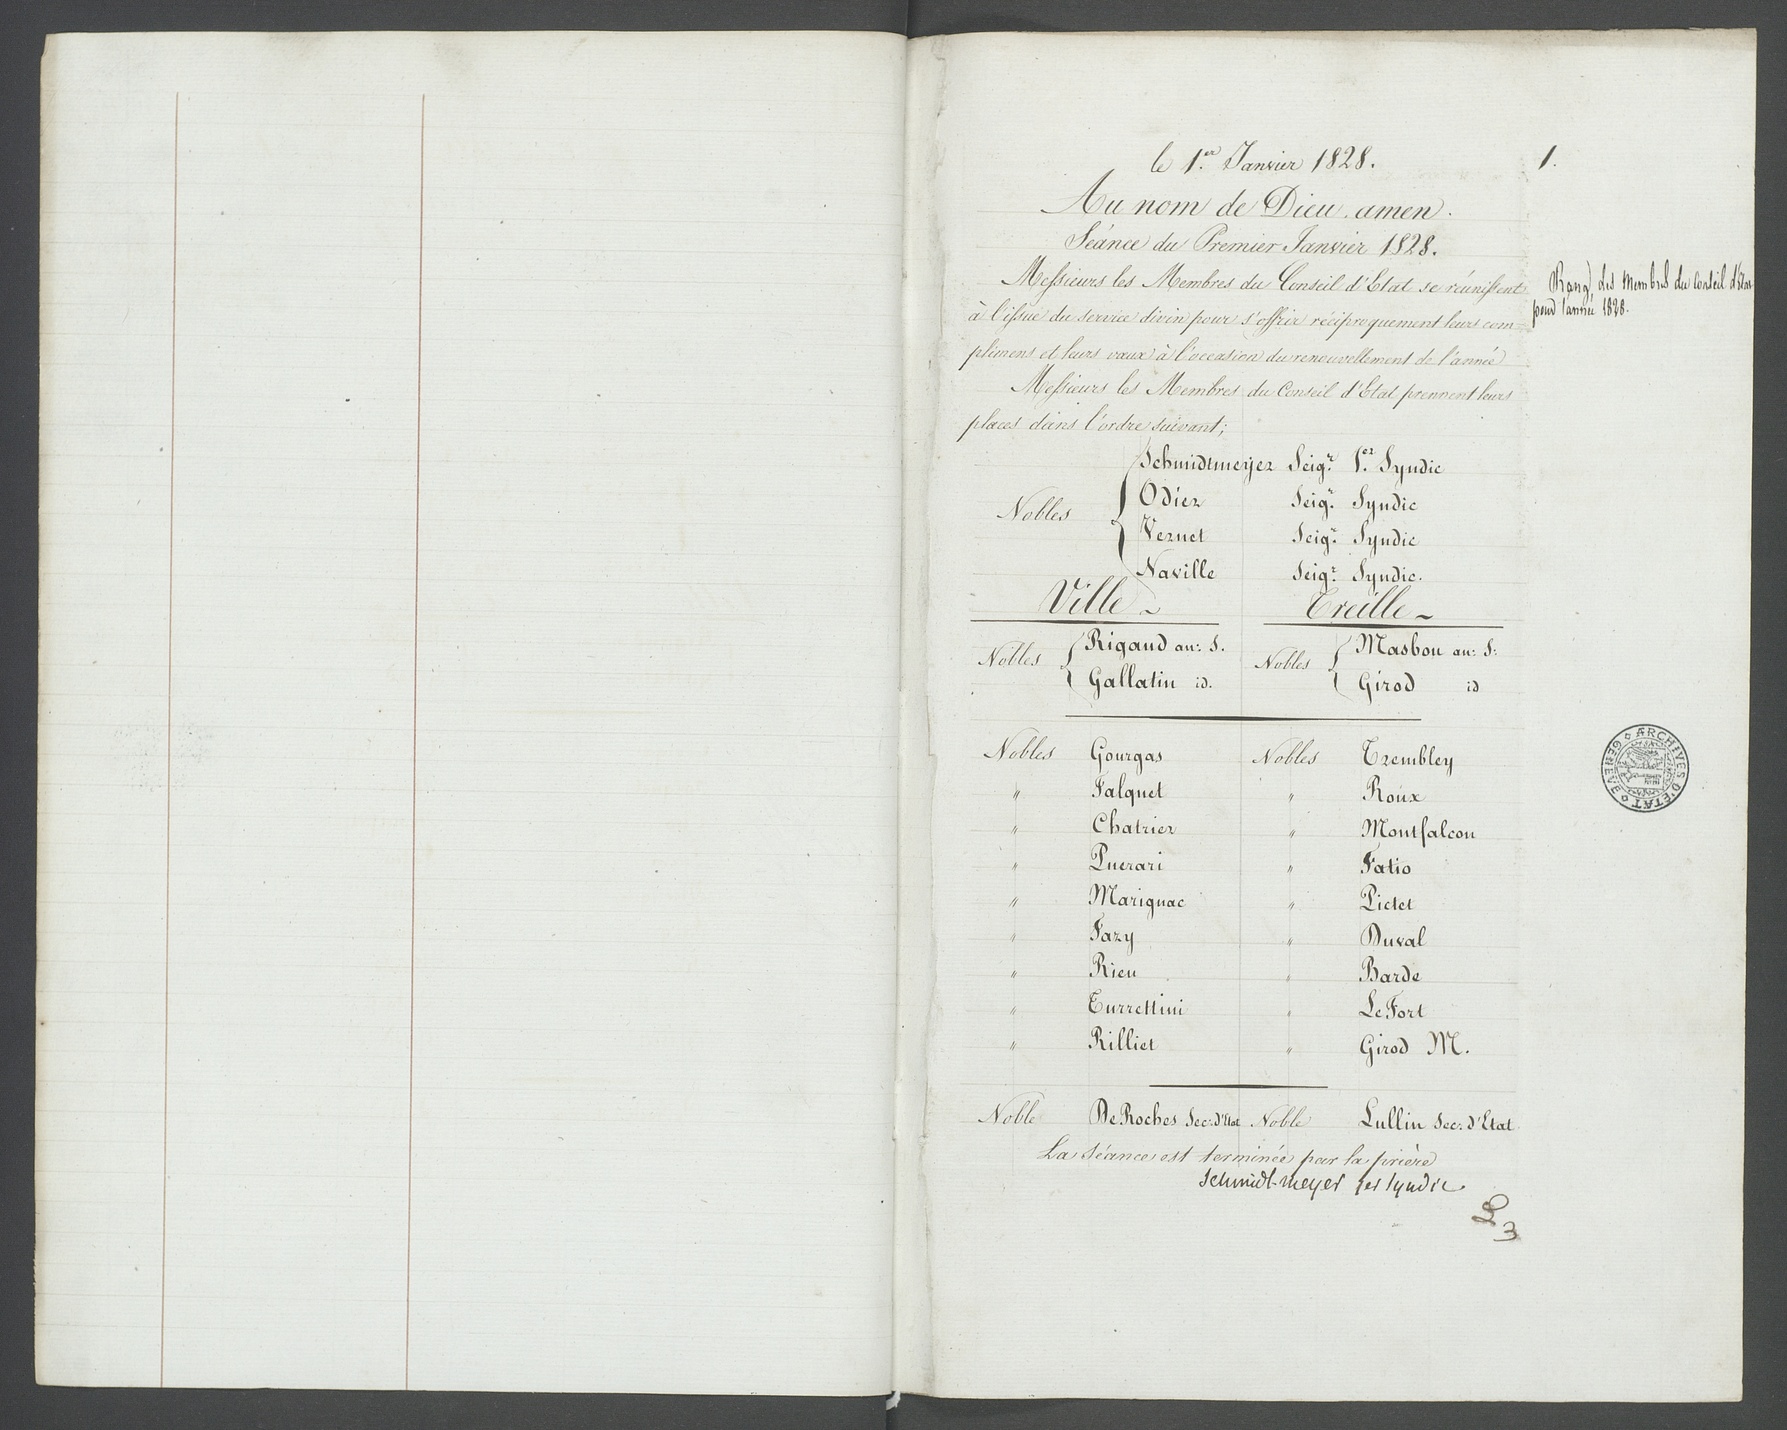 le 1.er Janvier 1828.
1.
Au nom de Dieu. amen.
Séance du Premier Janvier 1828.
Messieurs les Membres du Conseil d'Etat se réunissent
à l'issue du service divin pour s'offrir réciproquement leurs com-
plimens et leurs vœux à l'occasion du renouvellement de l'année
Rang des Membres du Conseil d'Etat
pour l'année 1828.
Messieurs les Membres du Conseil d'Etat prennent leurs
places dans l'ordre suivant;
Nobles
Schmidtmeyer Seig.r 1.er Syndic
Odier Seig.r Syndic
Vernet Seig.r Syndic
Naville Seig.r Syndic.
Ville Treille
Nobles Rigaud an: S. Nobles Masbou an: S:
Gallatin id. Girod id
Nobles Gourgas Nobles Trembley
" Falquet " Roux
" Chatrier " Montfalcon
" Puerari " Fatio
" Marignac " Pictet
" Fazy " Duval
" Rieu " Barde
" Turrettini " LeFort
" Rilliet " Girod M.
Noble DeRoches Sec: d'Etat Noble Lullin Sec: d'Etat
La Séance est terminée par la prière
Schmidt-meyer 1er Syndic
ARCHIVES D'ÉTAT GENÈVE